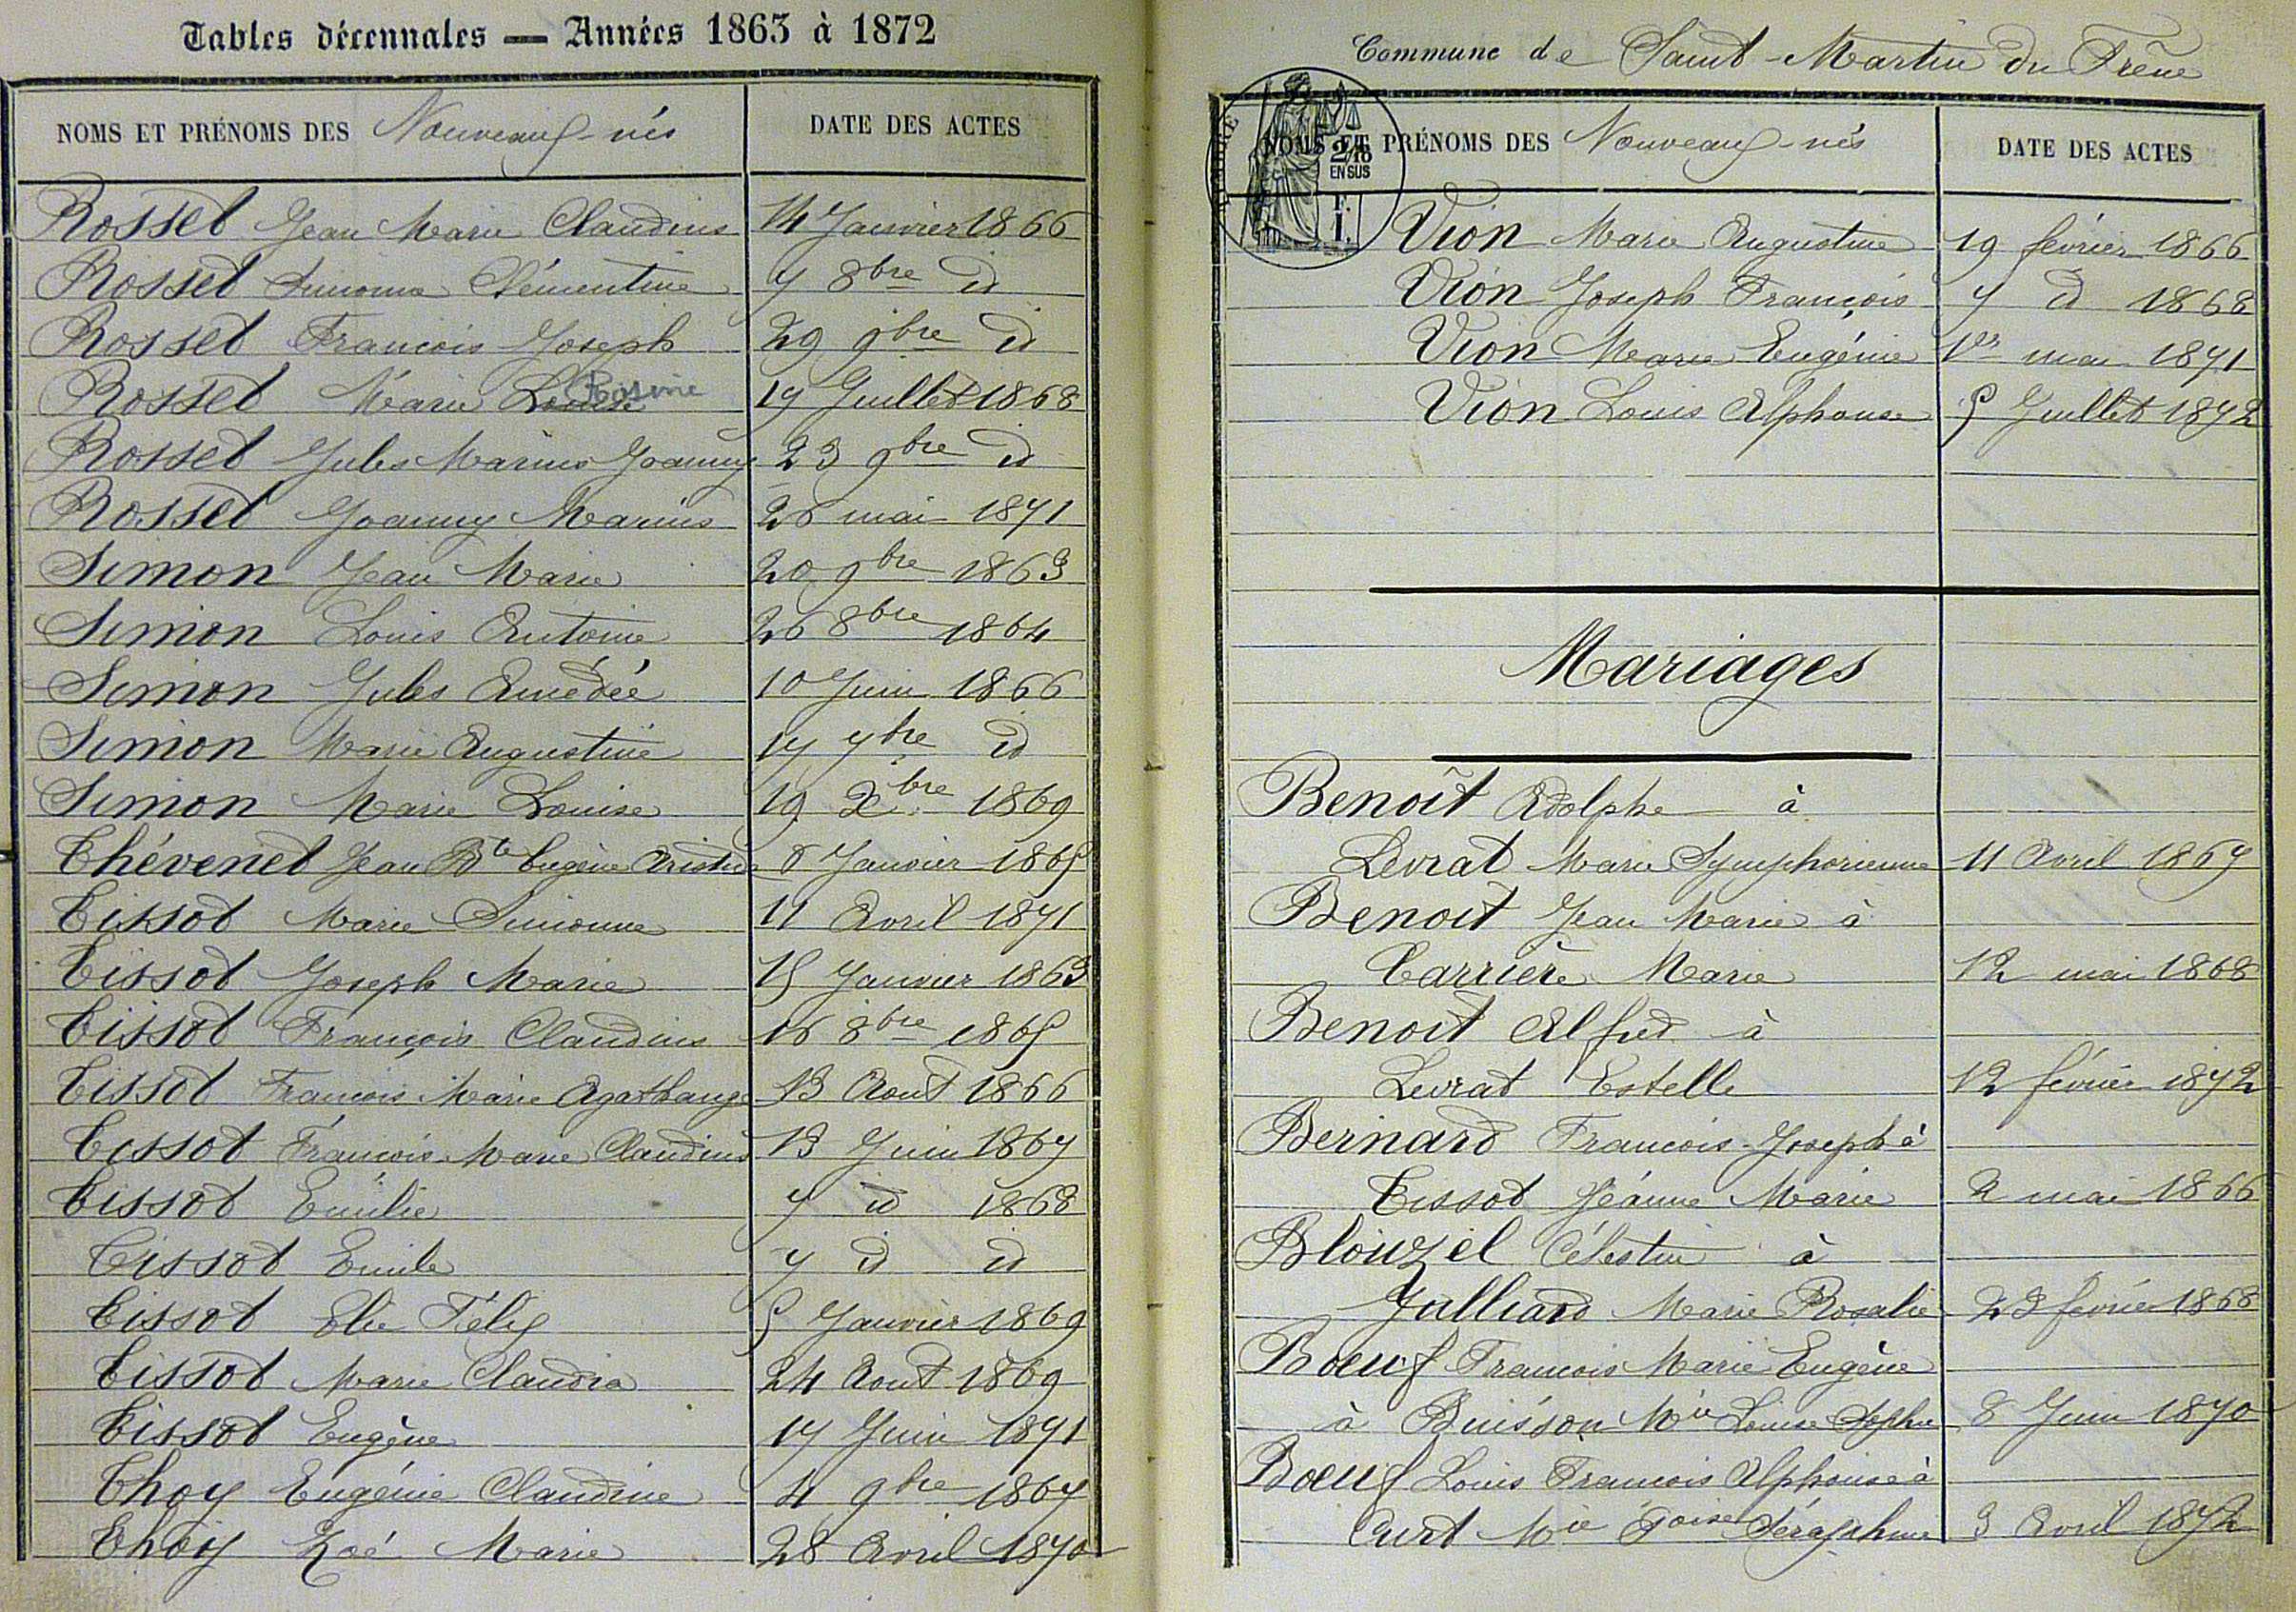 Tables décennales — Années 1863 à 1872
NOMS ET PRÉNOMS DES Nouveaux-nés DATE DES ACTES
Rosset Jean Marie Claudius 14 Janvier 1866
Rosset Simonne Clémentine 7 8bre id
Rosset François Joseph 29 9bre id
Rosset Marie Louise Rosine 17 Juillet 1868
Rosset Jules Marius Joanny 23 9bre id
Rosset Joanny Marius 26 mai 1871
Simon Jean Marie 20 9bre 1863
Simon Louis Antoine 26 8bre 1864
Simon Jules Amédée 10 Juin 1866
Simon Marie Augustine 17 7bre id
Simon Marie Louise 19 Xbre 1869
Thévenet Jean Bte Eugène Aristide 6 Janvier 1865
Tissot Marie Simonne 11 Avril 1871
Tissot Joseph Marie 15 Janvier 1863
Tissot François Claudius 16 8bre 1865
Tissot François Marie Agathange 13 Aout 1866
Tissot François Marie Claudius 13 Juin 1867
Tissot Emilie 7 id 1868
Tissot Emile 7 id id
Tissot Elie Félix 5 Janvier 1869
Tissot Marie Claudia 24 Aout 1869
Tissot Eugène 17 Juin 1871
Thoy Eugénie Claudine 4 9bre 1867
Thoy Zoé Marie 28 Avril 1870
Commune de Saint-Martin du Frêne
NOMS ET PRÉNOMS DES Nouveaux-nés DATE DES ACTES
2/10
EN SUS
F.
1.
Vion Marie Augustine 19 février 1866
Vion Joseph François 7 id 1868
Vion Marie Eugénie 1er mai 1871
Vion Louis Alphonse 5 Juillet 1872
Mariages
Benoît Adolphe à
Levrat Marie Symphorienne 11 Avril 1867
Benoit Jean Marie à
Carrière Marie 12 mai 1868
Benoit Alfred à
Levrat Estelle 12 février 1872
Bernard François-Joseph à
Tissot Jeanne Marie 2 mai 1866
Blouzel Célestin à
Julliard Marie Rosalie 23 février 1868
Boeuf François Marie Eugène
à Buisson Mie Louise Sophie 8 Juin 1870
Boeuf Louis François Alphonse à
Curt Mie Foise Séraphine 3 Avril 1872